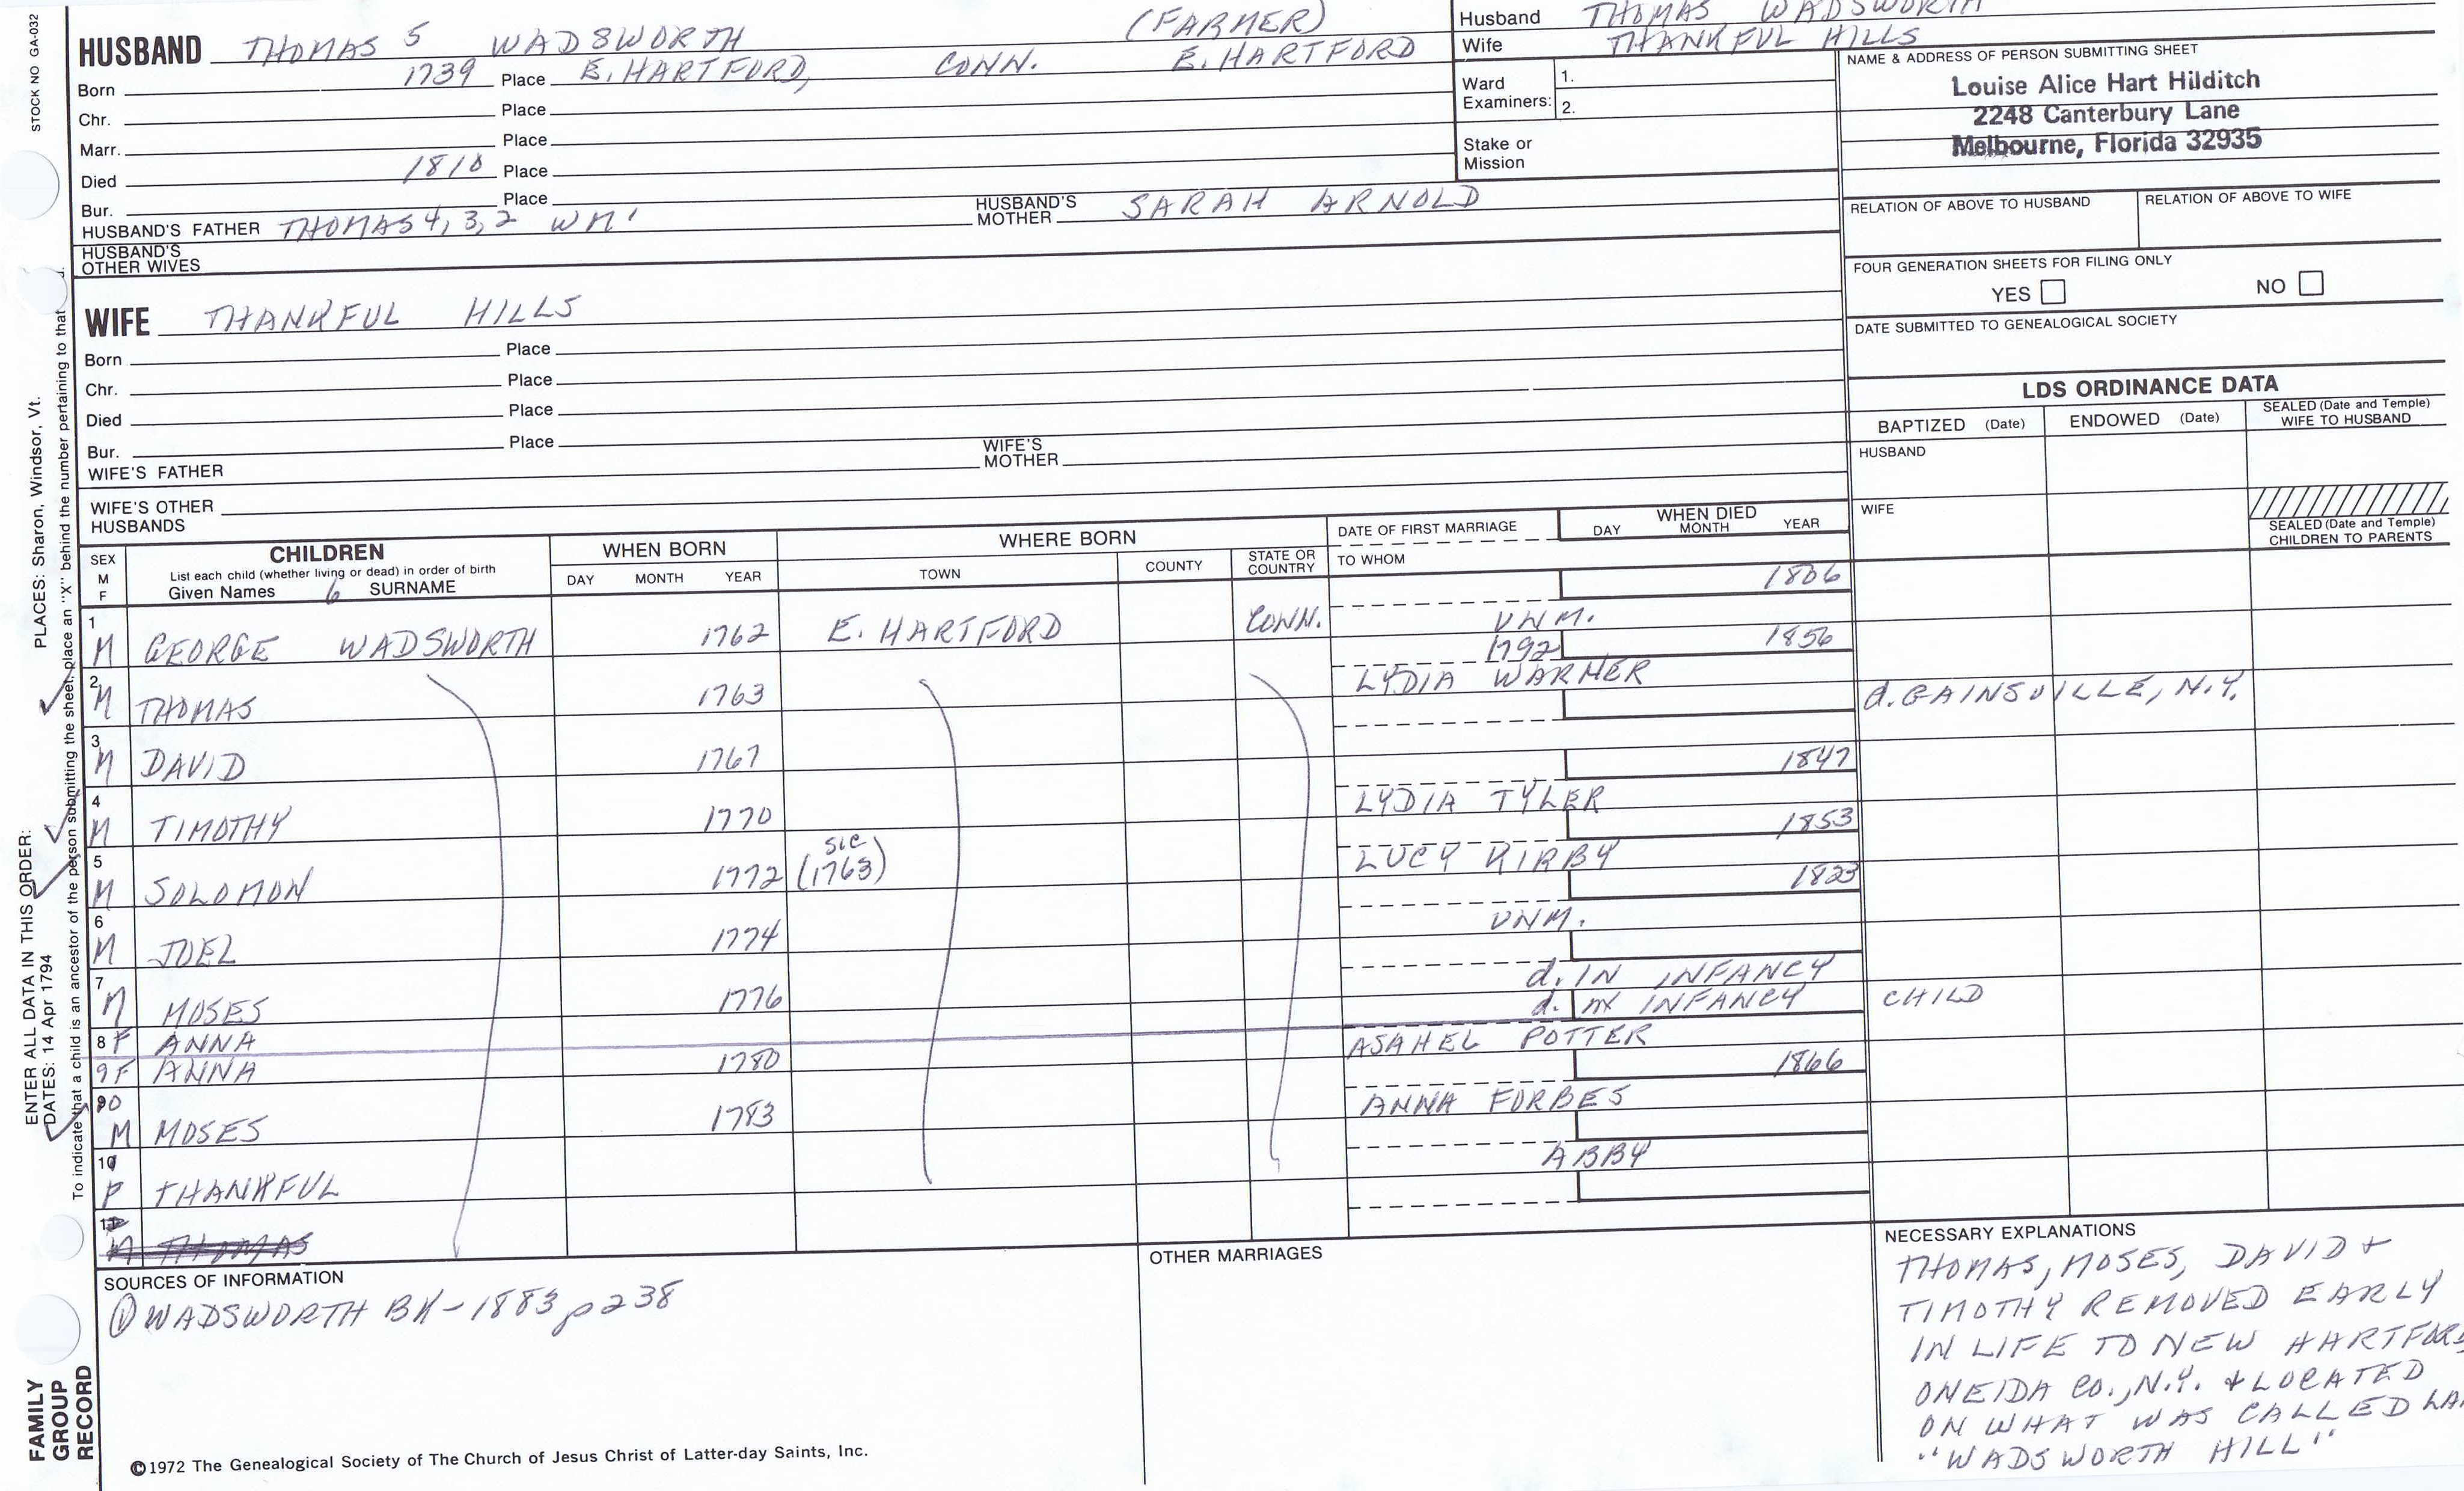 STOCK NO GA-032
HUSBAND THOMAS 5 WADSWORTH (FARMER)
Born 1739 Place E. HARTFORD, CONN. E. HARTFORD
Chr. Place
Marr. Place
Died 1810 Place
Bur. Place
HUSBAND'S FATHER THOMAS 4, 3, 2 WM' HUSBAND'S MOTHER SARAH ARNOLD
HUSBAND'S OTHER WIVES
Husband THOMAS WADSWORTH
Wife THANKFUL HILLS
Ward Examiners: 1.
2.
Stake or Mission
NAME & ADDRESS OF PERSON SUBMITTING SHEET
Louise Alice Hart Hilditch
2248 Canterbury Lane
Melbourne, Florida 32935
RELATION OF ABOVE TO HUSBAND RELATION OF ABOVE TO WIFE
FOUR GENERATION SHEETS FOR FILING ONLY
YES NO
DATE SUBMITTED TO GENEALOGICAL SOCIETY
WIFE THANKFUL HILLS
Born Place
Chr. Place
Died Place
Bur. Place
WIFE'S FATHER WIFE'S MOTHER
WIFE'S OTHER HUSBANDS
LDS ORDINANCE DATA
BAPTIZED (Date) ENDOWED (Date) SEALED (Date and Temple) WIFE TO HUSBAND
HUSBAND
WIFE
SEALED (Date and Temple) CHILDREN TO PARENTS
SEX M F
CHILDREN
List each child (whether living or dead) in order of birth
Given Names 6 SURNAME
WHEN BORN
DAY MONTH YEAR
WHERE BORN
TOWN COUNTY STATE OR COUNTRY
DATE OF FIRST MARRIAGE
TO WHOM
WHEN DIED
DAY MONTH YEAR
1806
1 M GEORGE WADSWORTH 1762 E. HARTFORD CONN. UNM.
1792 1856
2 M THOMAS 1763 LYDIA WARNER d. GAINSVILLE, N.Y.
3 M DAVID 1767
1847
4 M TIMOTHY 1770 LYDIA TYLER
1853
5 M SOLOMON 1772 sic (1763) LUCY KIRBY
1823
6 M JOEL 1774 UNM.
7 M MOSES 1776 d. IN INFANCY
8 F ANNA d. IN INFANCY CHILD
9 F ANNA 1780 ASAHEL POTTER
1866
10 M MOSES 1783 ANNA FORBES
10 F THANKFUL ABBY
M THOMAS
SOURCES OF INFORMATION
① WADSWORTH BK - 1883 p 238
OTHER MARRIAGES
NECESSARY EXPLANATIONS
THOMAS, MOSES, DAVID +
TIMOTHY REMOVED EARLY
IN LIFE TO NEW HARTFORD
ONEIDA CO., N.Y. + LOCATED
ON WHAT WAS CALLED
"WADSWORTH HILL"
©1972 The Genealogical Society of The Church of Jesus Christ of Latter-day Saints, Inc.
FAMILY
GROUP
RECORD
ENTER ALL DATA IN THIS ORDER:
DATES: 14 Apr 1794
PLACES: Sharon, Windsor, Vt.
To indicate that a child is an ancestor of the person submitting the sheet, place an "X" behind the number pertaining to that